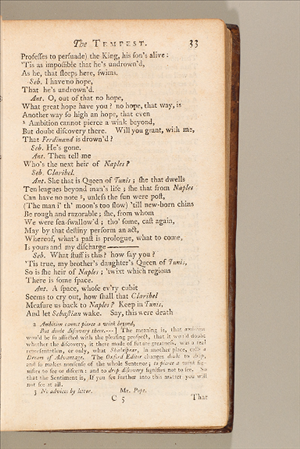 The TEMPEST. 33
Professes to persuade) the King, his son's alive:
'Tis as impossible that he's undrown'd,
As he, that sleeps here, swims.
Seb. I have no hope,
That he's undrown'd.
Ant. O, out of that no hope,
What great hope have you? no hope, that way, is
Another way so high an hope, that even
2 Ambition cannot pierce a wink beyond,
But doubt discovery there. Will you grant, with me,
That Ferdinand is drown'd?
Seb. He's gone.
Ant. Then tell me
Who's the next heir of Naples?
Seb. Claribel.
Ant. She that is Queen of Tunis; she that dwells
Ten leagues beyond man's life; she that from Naples
Can have no note 3, unless the sun were post,
(The man i' th' moon's too slow) 'till new-born chins
Be rough and razorable; she, from whom
We were sea-swallow'd; tho' some, cast again,
May by that destiny perform an act,
Whereof, what's past is prologue, what to come,
Is yours and my discharge
Seb. What stuff is this? how say you?
'Tis true, my brother's daughter's Queen of Tunis,
So is she heir of Naples; 'twixt which regions
There is some space.
Ant. A space, whose ev'ry cubit
Seems to cry out, how shall that Claribel
Measure us back to Naples? Keep in Tunis,
And let Sebastian wake. Say, this were death
2 Ambition cannot pierce a wink beyond,
But doubt discovery there.—] The meaning is, that ambition
would be so affected with the pleasing prospect, that it would doubt
whether the discovery, it there made of future greatness, was a real
representation, or only, what Shakespear, in another place, calls a
Dream of Advantage. The Oxford Editor changes doubt to drop,
and so makes nonsense of the whole Sentence;
that the Sentiment is, If you see further into this matter you will
not see it all.
3 No advices by letter. Mr. Pope.
C 5 That